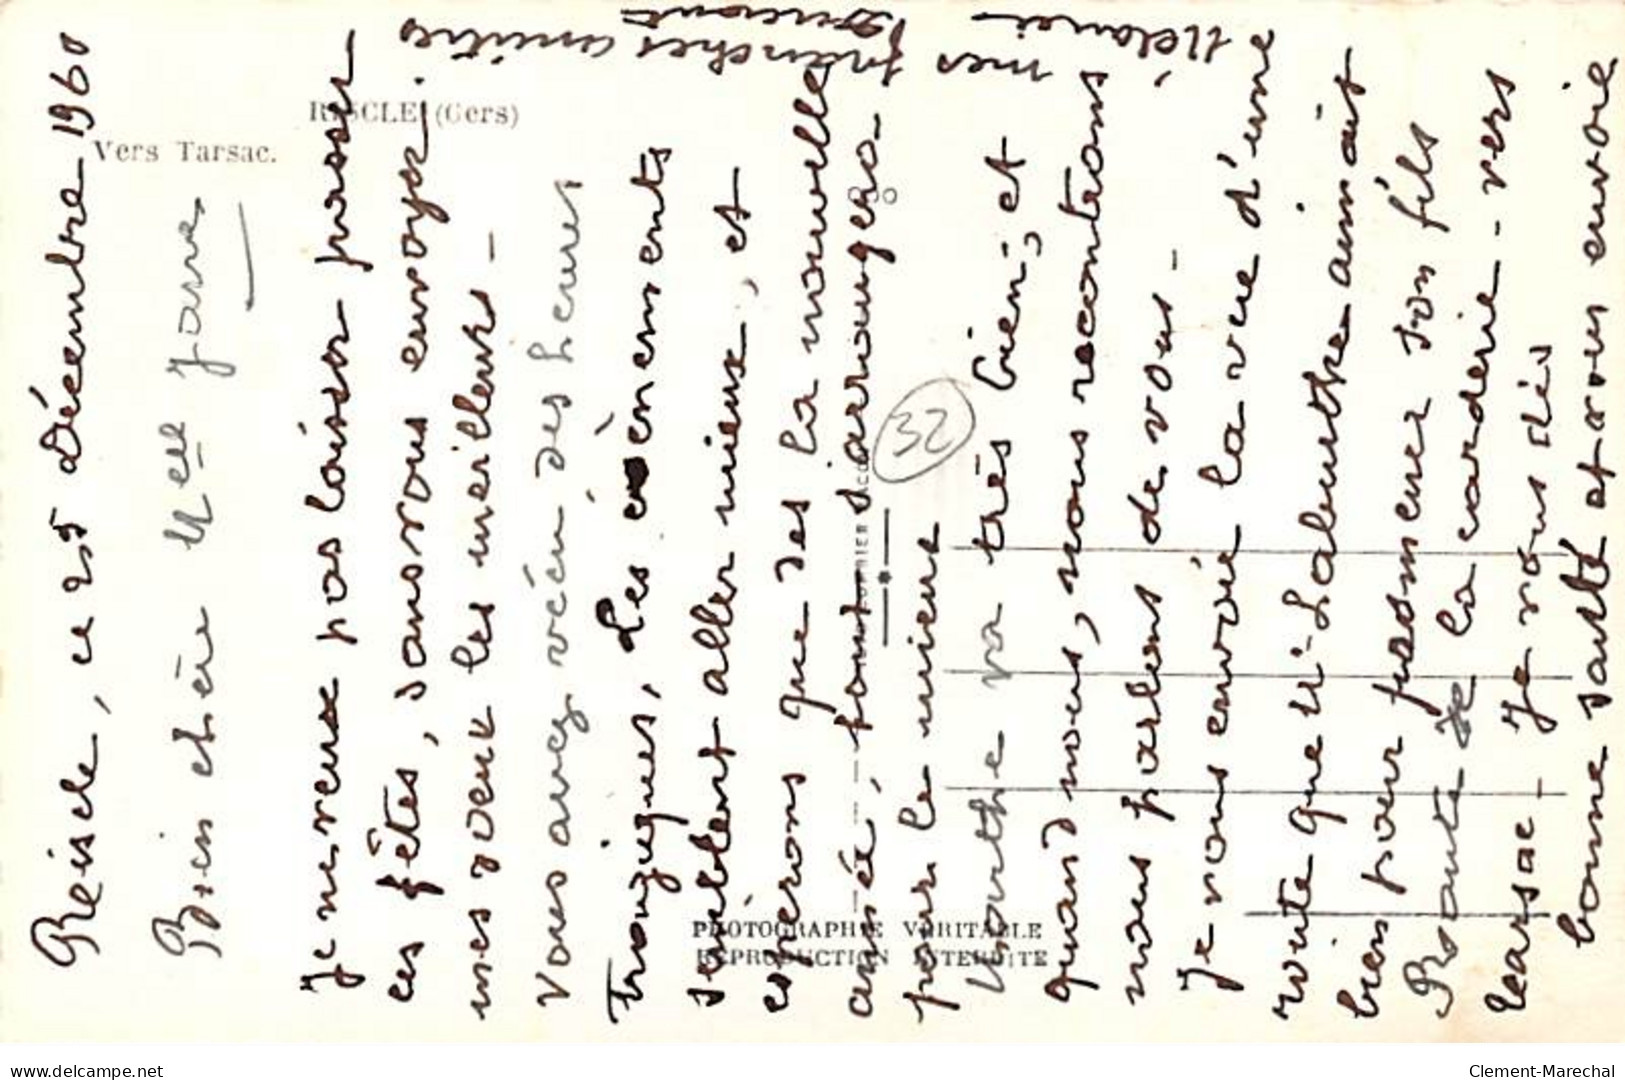 Riscle, ce 25 Décembre 1960
Bien chère Melle Jane
Je ne veux pas laisser passer
ces fêtes, sans vous envoyer
mes vœux les meilleurs -
Vous avez vécu des heures
tragiques, Les évènements
semblent aller mieux, et
espérons que dès la nouvelle
année, tout s'arrangera
pour le mieux
Marthe va très bien, et
quand nous, nous recontrons
nous parlons de vous -
Je vous envoie la vue d'une
route que Mr Labeuthe aimait
bien pour promener son fils
Route de la carderie - vers
Tarsac - Je vous dis
bonne santé et vous envoie
mes franches amitiés
RISCLE (Gers)
Vers Tarsac.
32
PHOTOGRAPHIE VÉRITABLE
REPRODUCTION INTERDITE
delcampe.net
Clement-Marechal